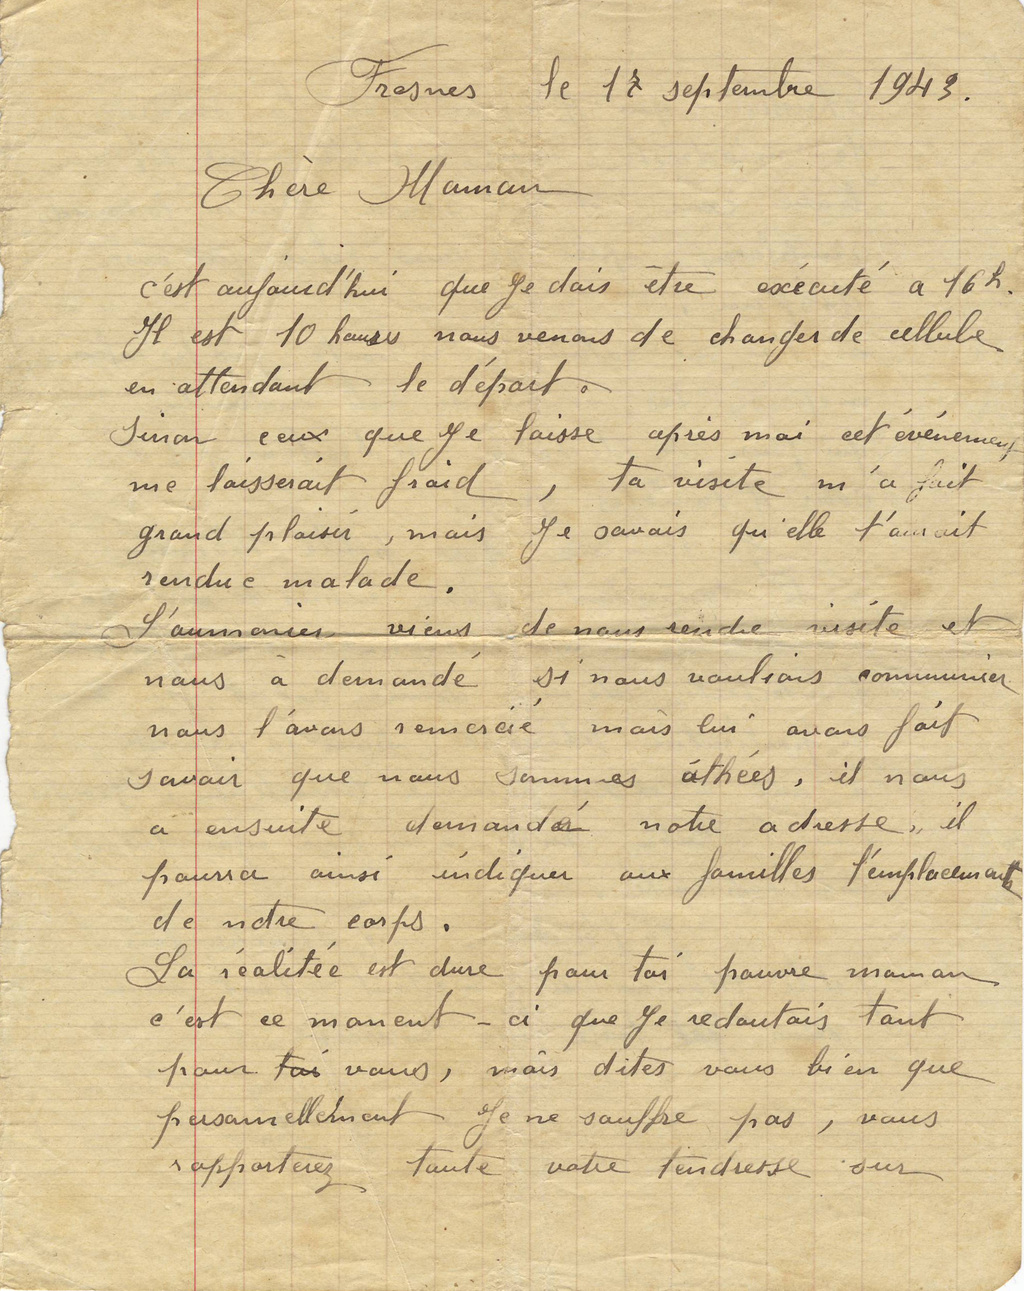 Fresnes le 17 septembre 1943.
Chère Maman
c'est aujourd'hui que Je dois être exécuté a 16h.
Il est 10 heures nous venons de changer de cellule
en attendant le départ.
Sinon ceux que Je laisse après moi cet événement
me laisserait froid, ta visite m'a fait
grand plaisir, mais Je savais qu'elle t'aurait
rendue malade.
L'aumonier viens de nous rendre visite et
nous à demandé si nous voulions communier
nous l'avons remercié mais lui avons fait
savoir que nous sommes athées, il nous
a ensuite demandé notre adresse, il
pourra ainsi indiquer aux familles l'emplacement
de notre corps.
La réalitée est dure pour toi pauvre maman
c'est ce moment-ci que Je redoutais tant
pour toi vous, mais dites vous bien que
personnellement Je ne souffre pas, vous
rapporterez toute votre tendresse sur